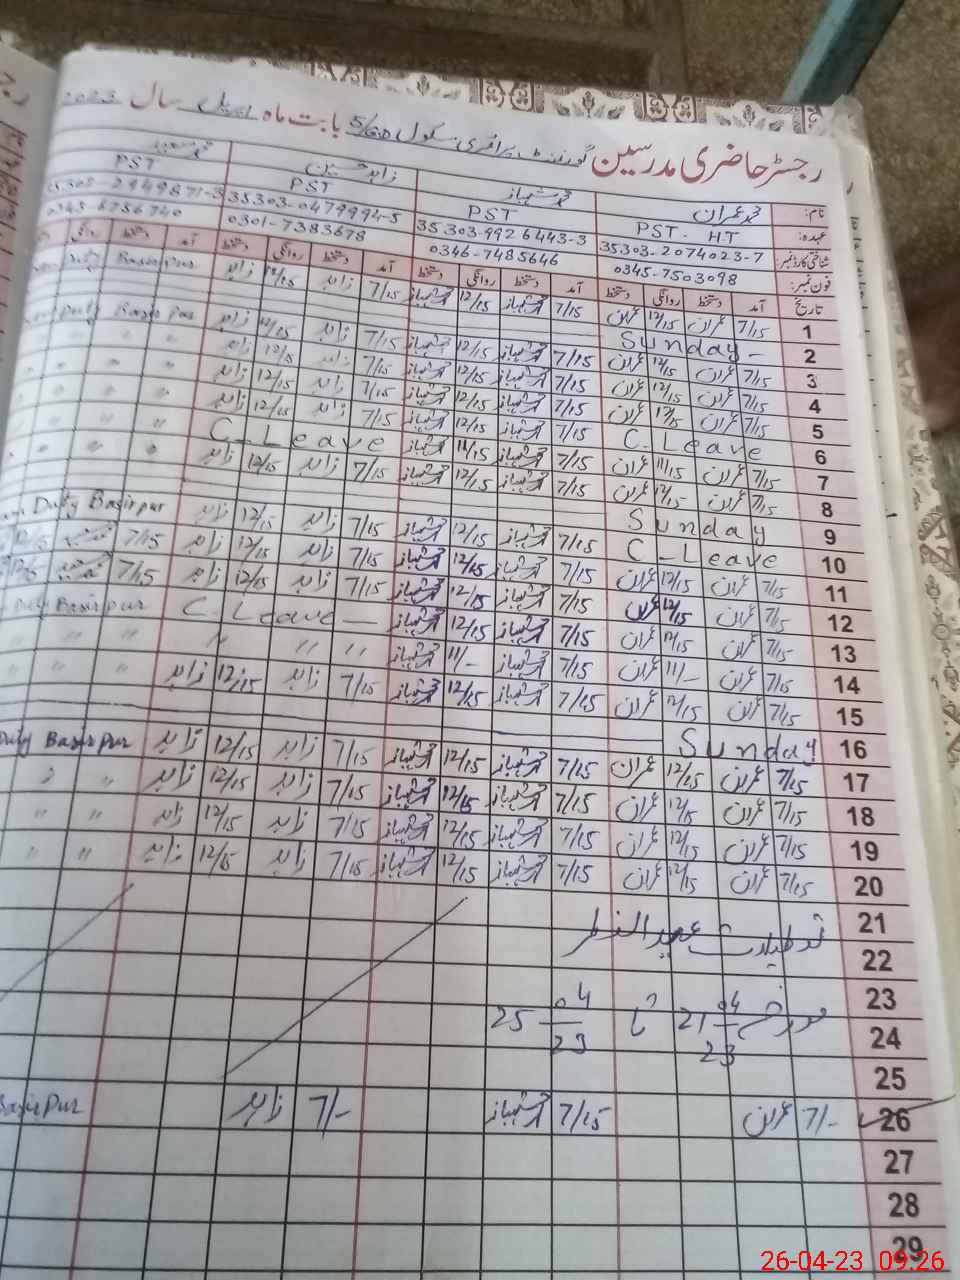 رجسٹر حاضری مدرسین گورنمنٹ پرائمری سکول 5/GD بابت ماہ اپریل سال 2023
نام: محمد عمران محمد شہباز زاہد حسین محمد سعید
عہدہ: PST. HT PST PST PST
شناختی کارڈ نمبر: 35303-2074023-7 35303-9926443-3 35303-0479994-5 35303-2949871-3
فون نمبر: 0345-7503098 0346-7485646 0301-7383678 0345-6756740
تاریخ آمد دستخط روانگی دستخط آمد دستخط روانگی دستخط آمد دستخط روانگی دستخط آمد دستخط روانگی
1 7/15 عمران 12/15 عمران 7/15 شہباز 12/15 شہباز 7/15 زاہد 12/15 زاہد Duty Basirpur
2 Sunday
3 7/15 عمران 12/15 عمران 7/15 شہباز 12/15 شہباز 7/15 زاہد 12/15 زاہد Duty Basirpur
4 7/15 عمران 12/15 عمران 7/15 شہباز 12/15 شہباز 7/15 زاہد 12/15 زاہد " " "
5 7/15 عمران 12/15 عمران 7/15 شہباز 12/15 شہباز 7/15 زاہد 12/15 زاہد " " "
6 C-Leave 7/15 شہباز 12/15 شہباز 7/15 زاہد 12/15 زاہد " " "
7 7/15 عمران 11/15 عمران 7/15 شہباز 11/15 شہباز C-Leave " " "
8 7/15 عمران 12/15 عمران 7/15 شہباز 12/15 شہباز 7/15 زاہد 12/15 زاہد " " "
9 Sunday
10 C-Leave 7/15 شہباز 12/15 شہباز 7/15 زاہد 12/15 زاہد Duty Basirpur
11 7/15 عمران 12/15 عمران 7/15 شہباز 12/15 شہباز 7/15 زاہد 12/15 زاہد 7/15 12/15
12 7/15 عمران 12/15 عمران 7/15 شہباز 12/15 شہباز 7/15 زاہد 12/15 زاہد 7/15 12/15
13 7/15 عمران 12/15 عمران 7/15 شہباز 12/15 شہباز C-Leave Duty Basirpur
14 7/15 عمران 11/- عمران 7/15 شہباز 11/- شہباز " " " " " "
15 7/15 عمران 12/15 عمران 7/15 شہباز 12/15 شہباز 7/15 زاہد 12/15 زاہد " " "
16 Sunday
17 7/15 عمران 12/15 عمران 7/15 شہباز 12/15 شہباز 7/15 زاہد 12/15 زاہد Duty Basirpur
18 7/15 عمران 12/15 عمران 7/15 شہباز 12/15 شہباز 7/15 زاہد 12/15 زاہد " "
19 7/15 عمران 12/15 عمران 7/15 شہباز 12/15 شہباز 7/15 زاہد 12/15 زاہد " "
20 7/15 عمران 12/15 عمران 7/15 شہباز 12/15 شہباز 7/15 زاہد 12/15 زاہد " "
21
22 تعطیلات عید الفطر
23
24 مورخہ 21-04-23 تا 25-04-23
25
26 7/- عمران 7/15 شہباز 7/- زاہد Basirpur
27
28
29
26-04-23 09:26